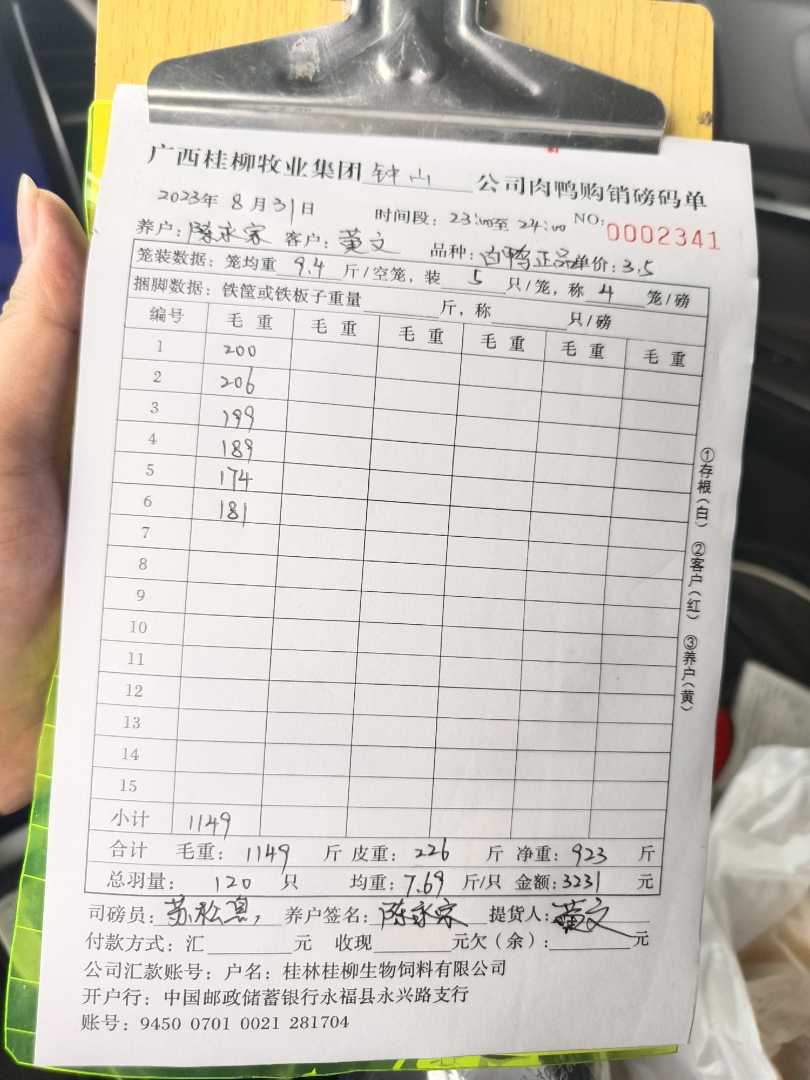 广西桂柳牧业集团钟山公司肉鸭购销磅码单
2023年8月31日 时间段：23:00至24:00 NO: 0002341
养户：陈永家 客户：黄文 品种：白鸭正品 单价：3.5
笼装数据：笼均重 9.4 斤/空笼，装 5 只/笼，称 4 笼/磅
捆脚数据：铁筐或铁板子重量 斤，称 只/磅
编号 毛重 毛重 毛重 毛重 毛重 毛重
1 200
2 206
3 199
4 189
5 174
6 181
7
8
9
10
11
12
13
14
15
小计 1149
合计 毛重：1149 斤 皮重：226 斤 净重：923 斤
总羽量：120 只 均重：7.69 斤/只 金额：3231 元
司磅员：苏 养户签名：陈永家 提货人：黄文
付款方式：汇 元 收现 元欠（余）： 元
公司汇款账号：户名：桂林桂柳生物饲料有限公司
开户行：中国邮政储蓄银行永福县永兴路支行
账号：9450 0701 0021 281704
①存根（白） ②客户（红） ③养户（黄）